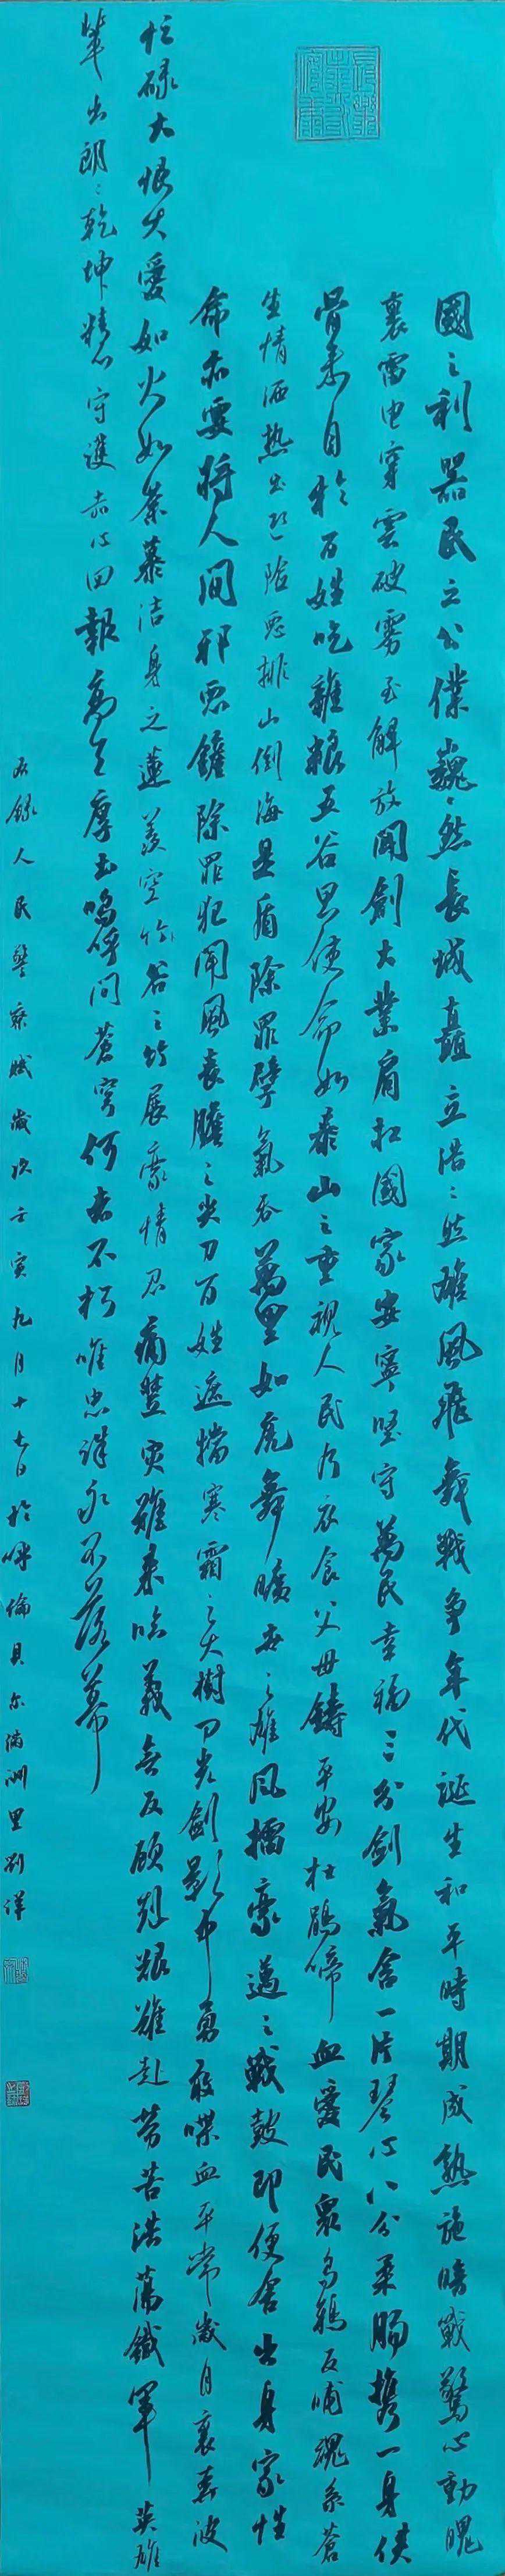 國之利器民立公僕巍巍然長城矗立浩浩然雄風飛舞戰争年代誕生和平時期成熟施曉戰驚心動魄
裏雷电穿雲破雾至解放開創大業肩扛國家安寧堅守萬民幸福三分剑氣含一片琴心八分柔腸携一身侠
骨来自於百姓吃雜粮五谷思使命如泰山之重視人民为衣食父母鑄平安杜鹃啼血爱民眾乌鸦反哺魂系蒼
生情洒热土 除恶排山倒海是盾除罪孽氣吞萬里如虎舞曠世之雄风擂豪邁之戰鼓即便舍出身家性
命亦要将人間邪恶鏟除罪犯闻風丧膽之尖刀百姓遮擋寒霜之大樹刀光劍影中勇敢喋血平常歲月裏奔波
忙碌大恨大愛如火如荼慕洁身之蓮羡空怀谷之竹展豪情忍痛 灾難来临義無反顧剋艱難赴劳苦浩蕩鐵軍英雄
輩出朗朗乾坤精心守護赤心回報高天厚土嗚呼问蒼穹何者不朽唯忠誠永不落幕
右錄人民警察賦歲次壬寅九月十七日於呼倫貝尔滿洲里劉洋